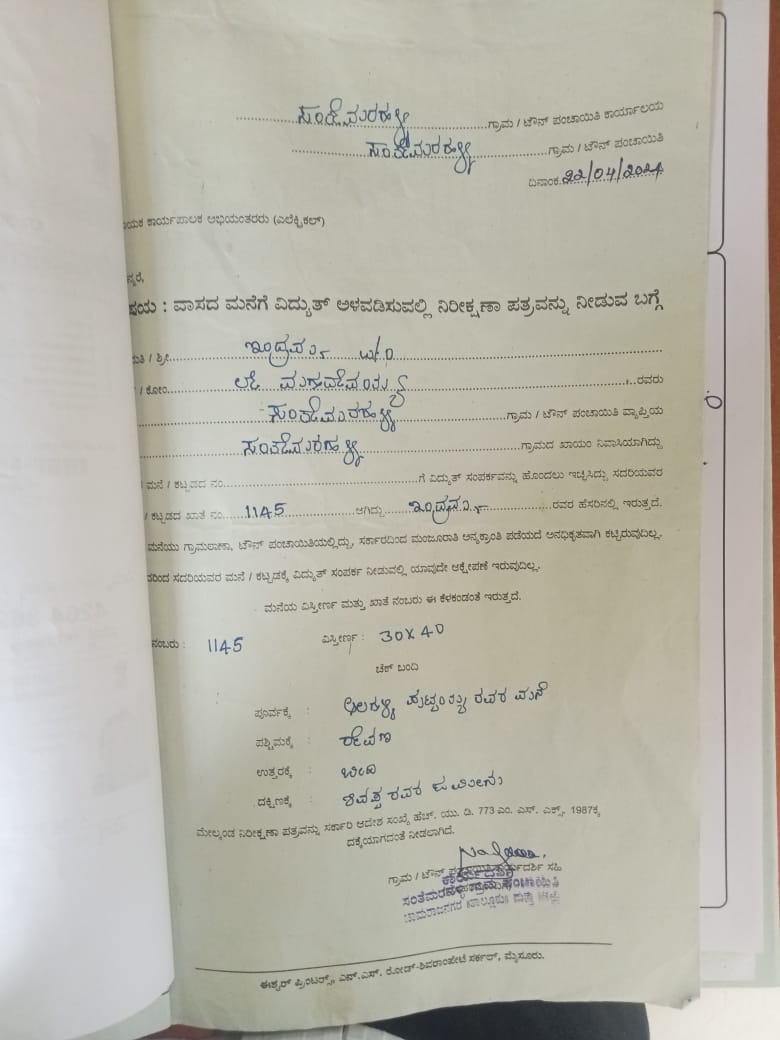 ಸಂತೆಮರಹಳ್ಳಿ ಗ್ರಾಮ / ಟೌನ್ ಪಂಚಾಯಿತಿ ಕಾರ್ಯಾಲಯ
ಸಂತೇಮರಹಳ್ಳಿ ಗ್ರಾಮ / ಟೌನ್ ಪಂಚಾಯಿತಿ
ದಿನಾಂಕ 22/04/2024
ಾಯಕ ಕಾರ್ಯಪಾಲಕ ಅಭಿಯಂತರರು (ಎಲೆಕ್ಟ್ರಿಕಲ್)
ನ್ಯರೆ,
ಷಯ : ವಾಸದ ಮನೆಗೆ ವಿದ್ಯುತ್ ಅಳವಡಿಸುವಲ್ಲಿ ನಿರೀಕ್ಷಣಾ ಪತ್ರವನ್ನು ನೀಡುವ ಬಗ್ಗೆ
ಮತಿ / ಶ್ರೀ. ಇಂದ್ರಮ್ಮ w/o
/ ಕೋಂ. ಲೇ ಮಹದೇವಯ್ಯ ರವರು
ಸಂತೇಮರಹಳ್ಳಿ ಗ್ರಾಮ / ಟೌನ್ ಪಂಚಾಯಿತಿ ವ್ಯಾಪ್ತಿಯ
ಸಂತೆಮರಹಳ್ಳಿ ಗ್ರಾಮದ ಖಾಯಂ ನಿವಾಸಿಯಾಗಿದ್ದು
ಮನೆ / ಕಟ್ಟಡದ ನಂ. ಗೆ ವಿದ್ಯುತ್ ಸಂಪರ್ಕವನ್ನು ಹೊಂದಲು ಇಚ್ಛಿಸಿದ್ದು ಸದರಿಯವರ
/ ಕಟ್ಟಡದ ಖಾತೆ ನಂ. 1145 ಆಗಿದ್ದು ಇಂದ್ರಮ್ಮ ರವರ ಹೆಸರಿನಲ್ಲಿ ಇರುತ್ತದೆ.
ಮನೆಯು ಗ್ರಾಮಠಾಣಾ, ಟೌನ್ ಪಂಚಾಯಿತಿಯಲ್ಲಿದ್ದು, ಸರ್ಕಾರದಿಂದ ಮಂಜೂರಾತಿ ಅನ್ಯಕ್ರಾಂತಿ ಪಡೆಯದೆ ಅನಧಿಕೃತವಾಗಿ ಕಟ್ಟಿರುವುದಿಲ್ಲ.
ದರಿಂದ ಸದರಿಯವರ ಮನೆ / ಕಟ್ಟಡಕ್ಕೆ ವಿದ್ಯುತ್ ಸಂಪರ್ಕ ನೀಡುವಲ್ಲಿ ಯಾವುದೇ ಆಕ್ಷೇಪಣೆ ಇರುವುದಿಲ್ಲ.
ಮನೆಯ ವಿಸ್ತೀರ್ಣ ಮತ್ತು ಖಾತೆ ನಂಬರು ಈ ಕೆಳಕಂಡಂತೆ ಇರುತ್ತದೆ.
ನಂಬರು : 1145 ವಿಸ್ತೀರ್ಣ : 30 X 40
ಚೆಕ್ ಬಂದಿ
ಪೂರ್ವಕ್ಕೆ : ಪುಟ್ಟಯ್ಯ ರವರ ಮನೆ
ಪಶ್ಚಿಮಕ್ಕೆ : ರೇವಣ
ಉತ್ತರಕ್ಕೆ : ಬೀದಿ
ದಕ್ಷಿಣಕ್ಕೆ : ಶಿವಪ್ಪ ರವರ ಜಮೀನು
ಮೇಲ್ಕಂಡ ನಿರೀಕ್ಷಣಾ ಪತ್ರವನ್ನು ಸರ್ಕಾರಿ ಆದೇಶ ಸಂಖ್ಯೆ ಹೆಚ್. ಯು. ಡಿ. 773 ಎಂ. ಎಸ್. ಎಕ್ಸ್, 1987ಕ್ಕೆ
ದಕ್ಕೆಯಾಗದಂತೆ ನೀಡಲಾಗಿದೆ.
ಗ್ರಾಮ / ಟೌನ್ ಪಂಚಾಯಿತಿ ಕಾರ್ಯದರ್ಶಿ ಸಹಿ
ಕಾರ್ಯದರ್ಶಿ
ಸಂತೆಮರಹಳ್ಳಿ ಗ್ರಾಮ ಪಂಚಾಯಿತಿ
ಚಾಮರಾಜನಗರ ತಾಲ್ಲೂಕು ಮತ್ತು ಜಿಲ್ಲೆ
ಈಶ್ವರ್ ಪ್ರಿಂಟರ್ಸ್, ಎನ್.ಎಸ್. ರೋಡ್-ಶಿವರಾಂಪೇಟೆ ಸರ್ಕಲ್, ಮೈಸೂರು.